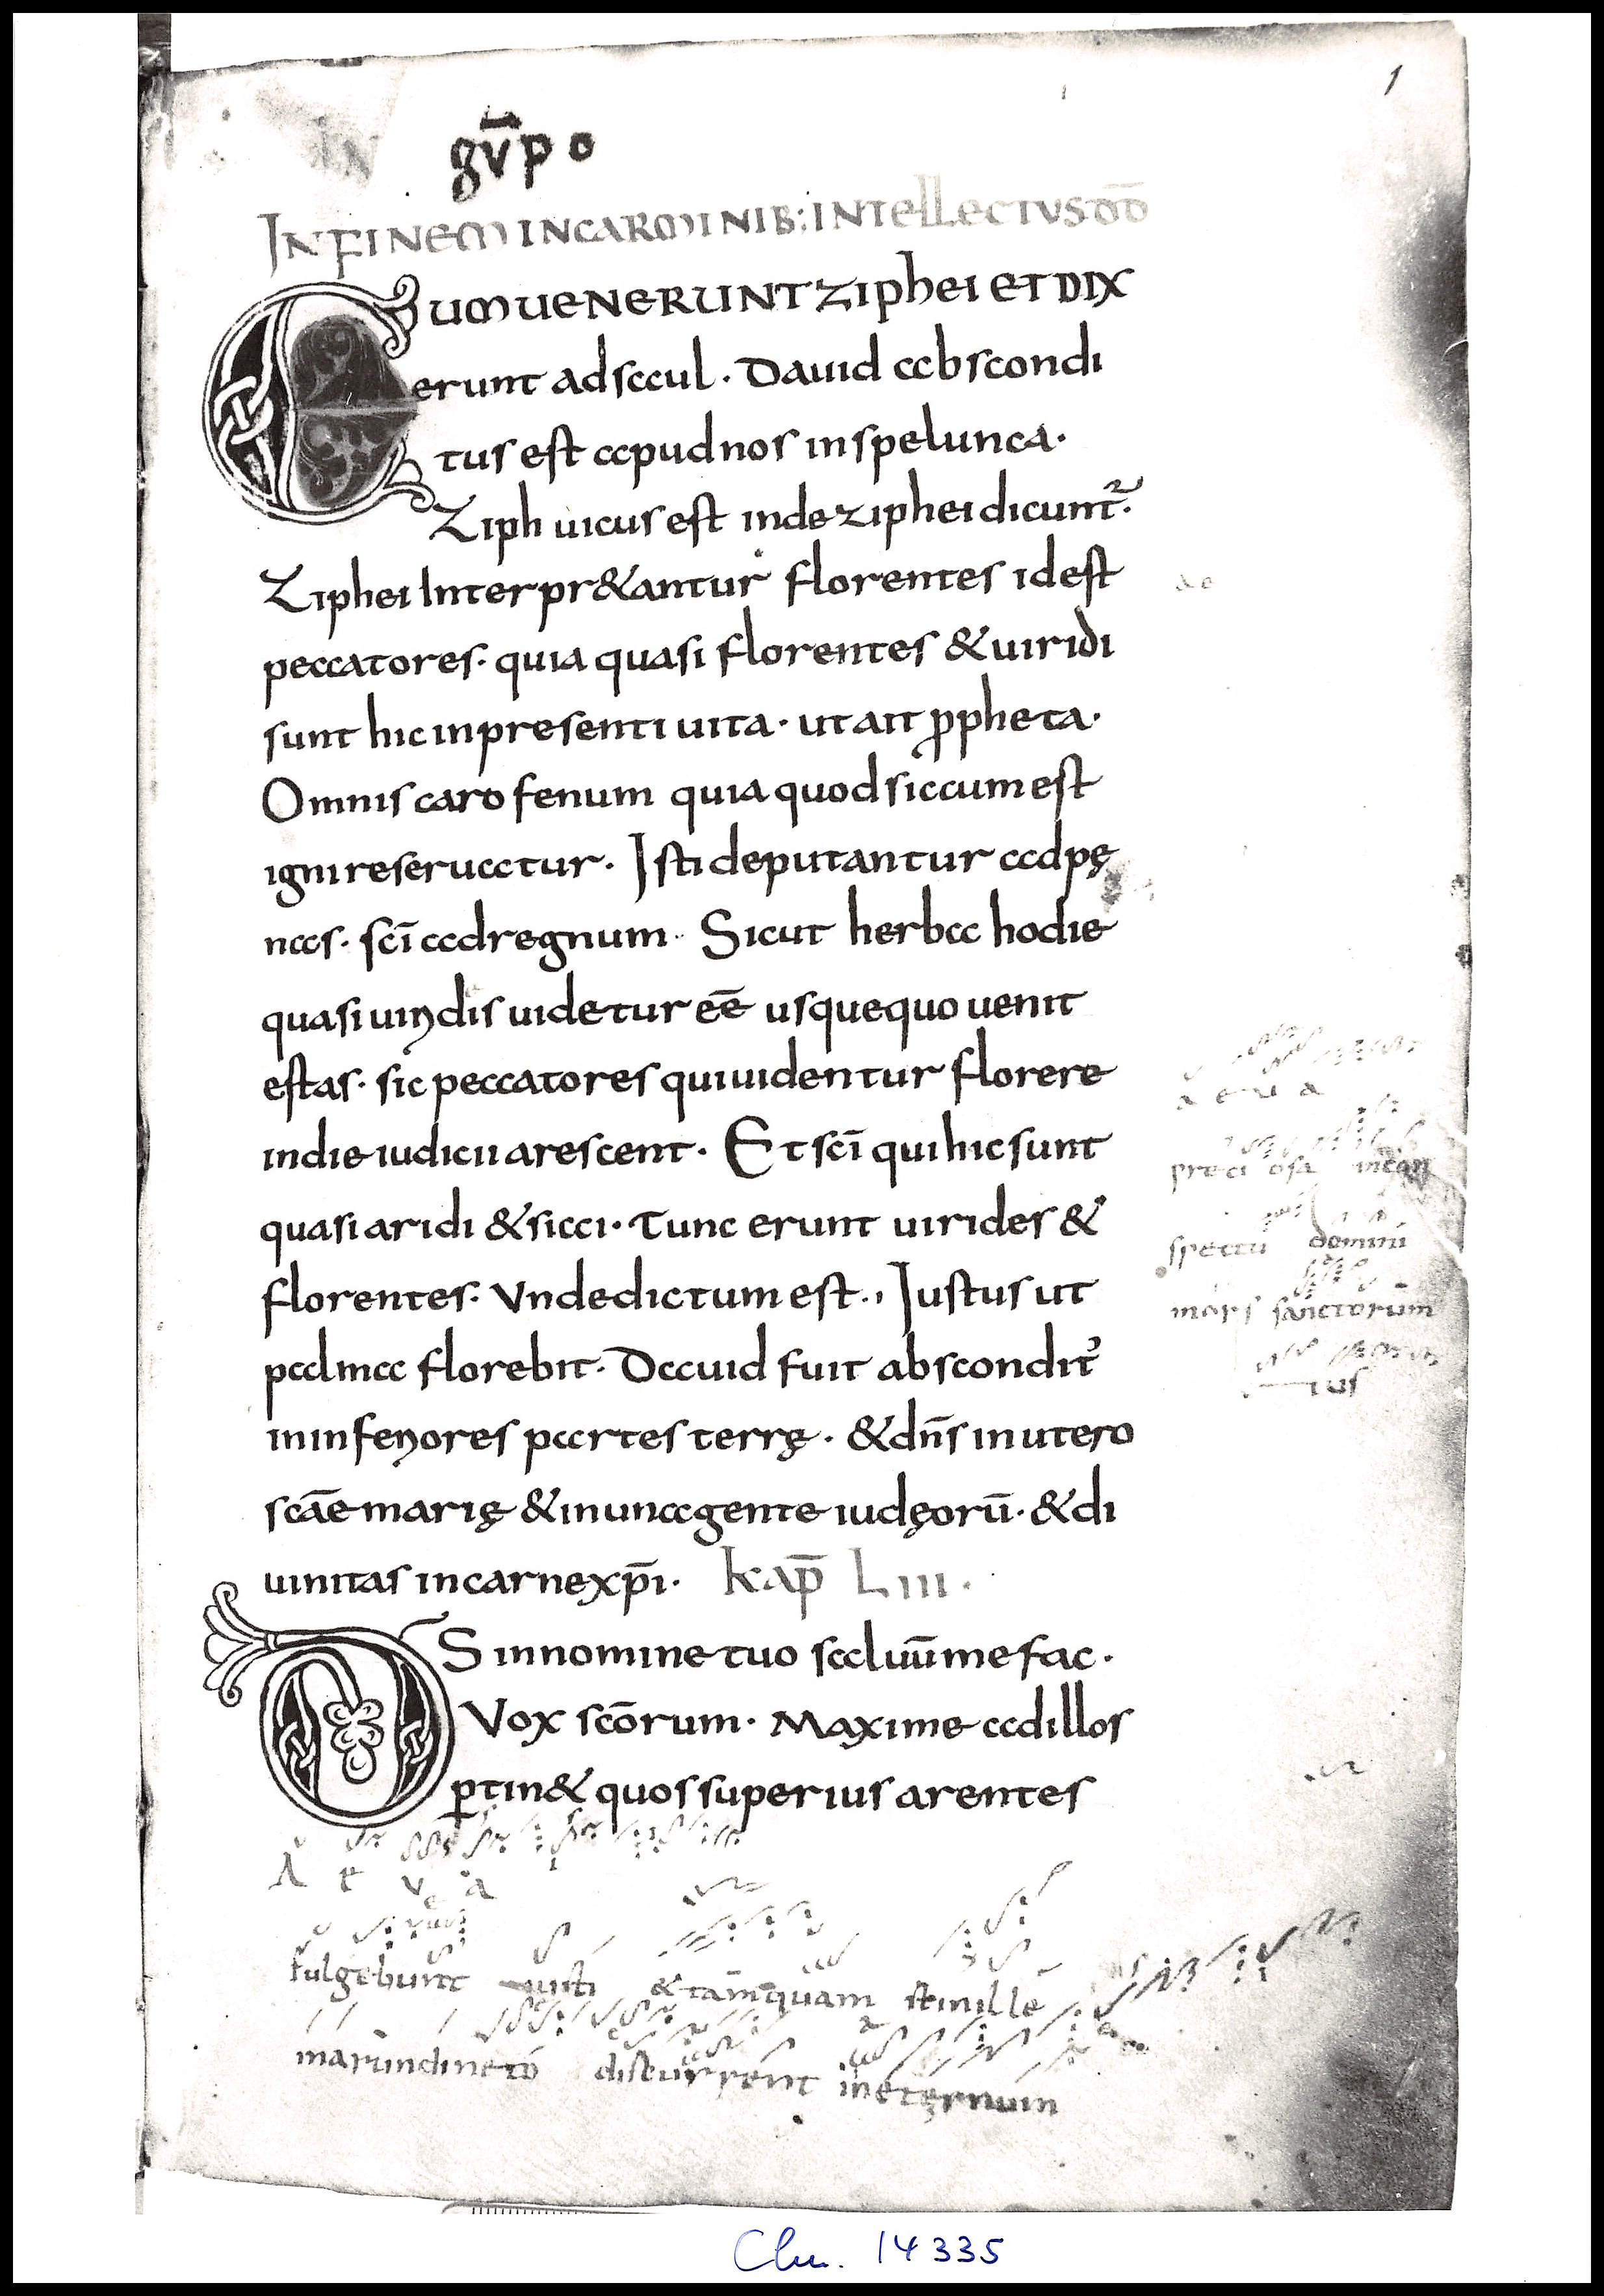 1
gv̄po
IN FINEM IN CARMINIB: INTELLECTUS DD̄
CUM UENERUNT ZIPHEI ET DIX
erunt ad saul. Dauid abscondi
tus est apud nos in spelunca.
Ziph uicus est inde ziphei dicunt᷑.
Ziphei Interpr&antur florentes idest
peccatores. quia quasi florentes & uiridi
sunt hic in presenti uita. ut ait ꝓpheta.
Omnis caro fenum quia quod siccum est
igni reseruatur. Isti deputantur ad pę
nas. sc̄i ad regnum. Sicut herba hodie
quasi uiridis uidetur eē usquequo uenit
estas. sic peccatores qui uidentur florere
in die iudicii arescent. Et sc̄i qui hic sunt
quasi aridi & sicci. Tunc erunt uirides &
florentes. Unde dictum est., Iustus ut
palma florebit. Dauid fuit abscondit᾽
in inferiores partes terrę. & dn̄s in utero
scāe marię & in una gente iudęorū. & di
uinitas in carne xp̄i. kap̄ LIII.
DS̄ in nomine tuo saluū me fac.
Vox scōrum. Maxime ad illos
ꝑtin& quos superius arentes
a e
a e u a
preci osa incon
spectu domini
mors sanctorum
tus
A e
v a
fulgebunt iusti & tamquam stintille
in arundineto discurrent in eternum
Clm. 14335